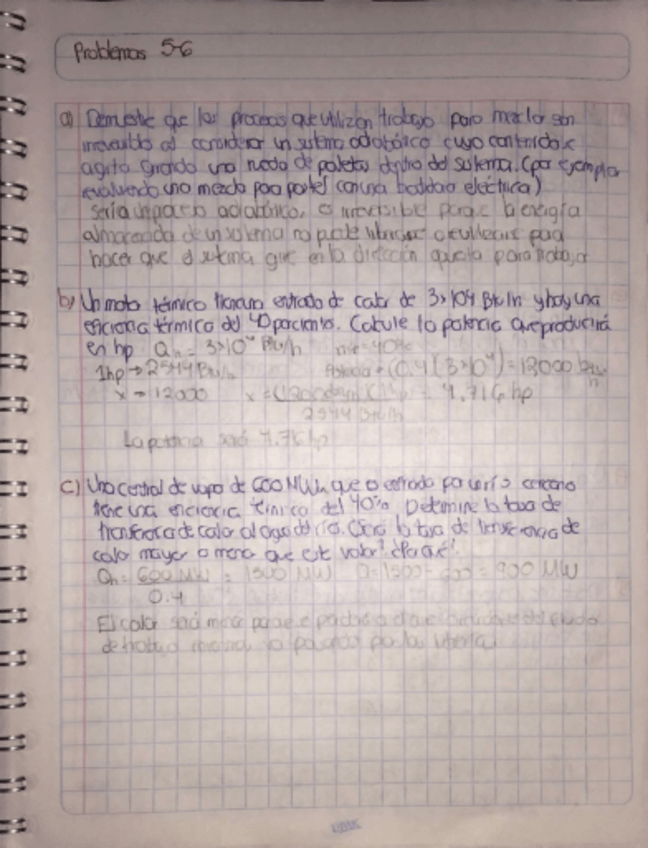 Problemas 5-6
a) Demuestre que los procesos que utilizan trabajo para mezclar son
irreversibles al considerar un sistema adiabático cuyo contenido se
agita girando una rueda de paletas dentro del sistema. (por ejemplo
una mezcla para pastel con una batidora eléctrica)
Sería un proceso adiabático, o irreversible porque la energía
almacenada de un sistema no puede o utilizarse para
hacer que el sistema gire en la dirección
b) Un motor térmico tiene una entrada de calor de 3×10⁴ Btu/h y hay una
eficiencia térmico del 40 porciento. Calcule la potencia que producirá
en hp Qh = 3×10⁴ Btu/h = 40%
1hp → 2544 Btu/h (0.4)(3×10⁴) = 12000 Btu/h
x → 12000 x = 4.716 hp
2544 Btu/h
La potencia será hp
c) Una central de vapor de 600 MW, que a por un río cercano
tiene una eficiencia térmica del 40%. Determine la tasa de
transferencia de calor al agua del río. la tasa de transferencia de
calor mayor o menor que este valor? ¿Porqué?
Qh = 600 MW = 1500 MW = 1500 - 600 = 900 MW
0.4
El calor será menor porque
de trabajo pasando por las tuberías